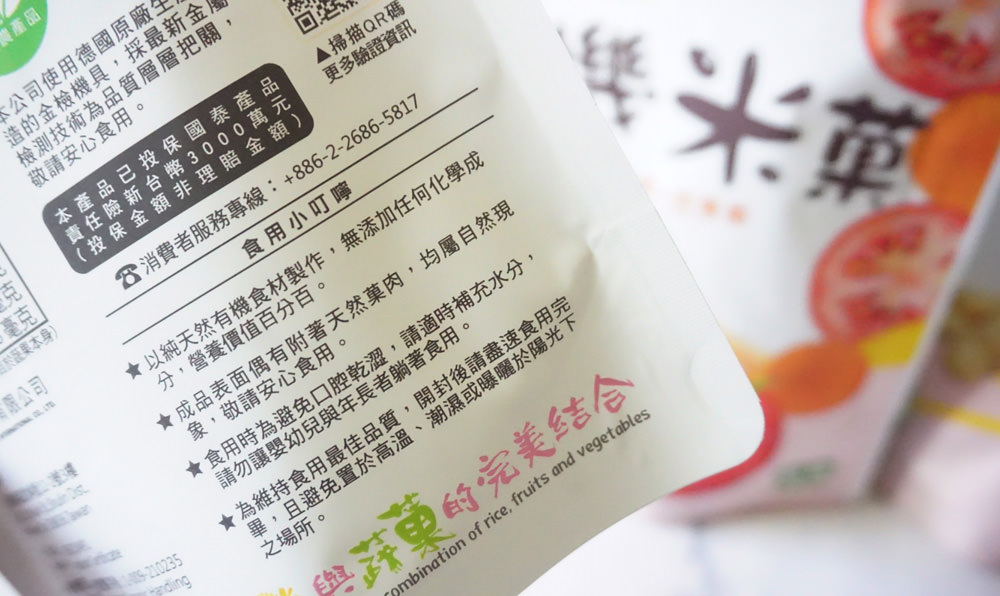 農產品
本公司使用德國原廠生
造的金檢機具，採最新金屬
檢測技術為品質層層把關，
敬請安心食用。
▲掃描QR碼
更多驗證資訊
本產品已投保國泰產品
責任險新台幣3000萬元
（投保金額非理賠金額）
☎消費者服務專線：+886-2-2686-5817
食用小叮嚀
★以純天然有機食材製作，無添加任何化學成
分，營養價值百分百。
★成品表面偶有附著天然菓肉，均屬自然現
象，敬請安心食用。
★食用時為避免口腔乾澀，請適時補充水分，
請勿讓嬰幼兒與年長者躺著食用。
★為維持食用最佳品質，開封後請盡速食用完
畢，且避免置於高溫、潮濕或曝曬於陽光下
之場所。
與蔬菓的完美結合
combination of rice, fruits and vegetables
克
毫克
限公司
210235
米菓